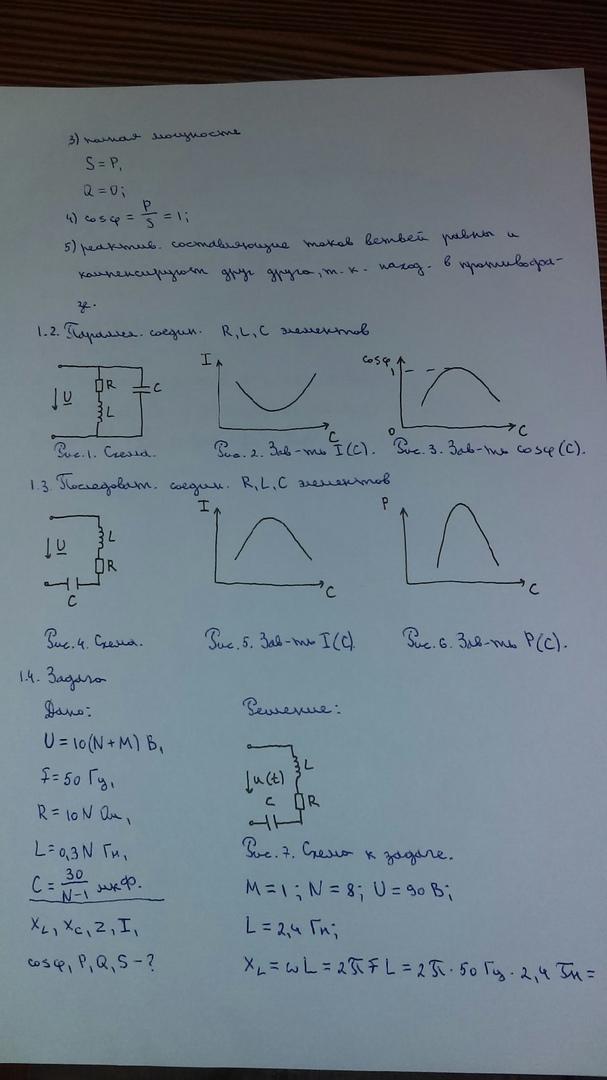 3) полная мощность
S = P,
Q = 0;
4) cosφ = P/S = 1;
5) реактив. составляющие токов ветвей равны и
компенсируют друг друга, т.к. наход. в противофа-
зе.
1.2. Параллел. соедин. R, L, C элементов
U R L C
I C
cosφ 1 0 C
Рис. 1. Схема. Рис. 2. Зав-ть I(C). Рис. 3. Зав-ть cosφ(C).
1.3. Последоват. соедин. R, L, C элементов
U L R C
I C
P C
Рис. 4. Схема. Рис. 5. Зав-ть I(C). Рис. 6. Зав-ть P(C).
1.4. Задача
Дано: Решение:
U = 10(N+M) В,
f = 50 Гц,
R = 10N Ом,
L = 0,3N Гн,
C = 30/(N-1) мкФ.
XL, XC, Z, I,
cosφ, P, Q, S - ?
u(t) L R C
Рис. 7. Схема к задаче.
M = 1; N = 8; U = 90 В;
L = 2,4 Гн;
XL = ωL = 2πfL = 2π · 50 Гц · 2,4 Гн =